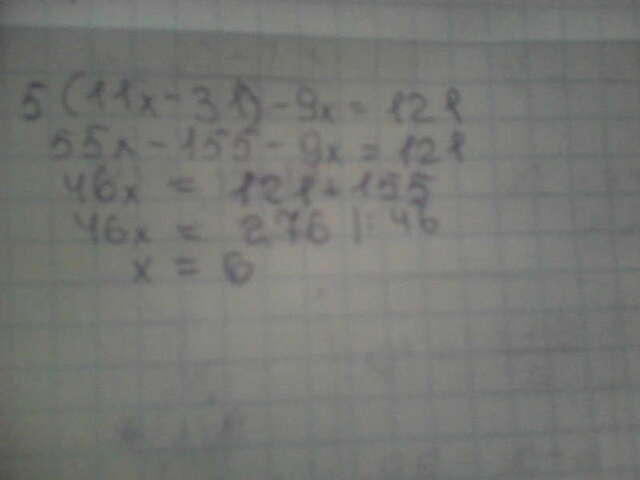 5(11x-31)-9x=121
55x-155-9x=121
46x = 121+155
46x = 276 |:46
x = 6